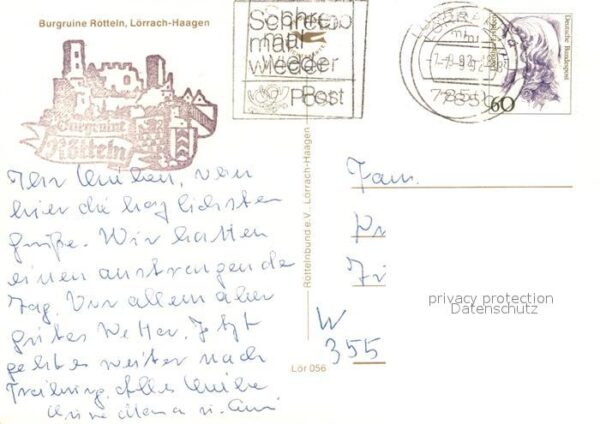 Burgruine Rötteln, Lörrach-Haagen
Schreib
mal
wieder
Post
LÖRRACH 1
7850
60
Deutsche Bundespost
Burgruine
Rötteln
Ihr Lieben, von
hier die herzlichsten
Grüße. Wir hatten
einen anstrengenden
Tag. Vor allem aber
gutes Wetter. Jetzt
geht es weiter nach
Freiburg. Alles Liebe
Röttelnbund e.V., Lörrach-Haagen
Lör 056
Fam.
W
355
privacy protection
Datenschutz